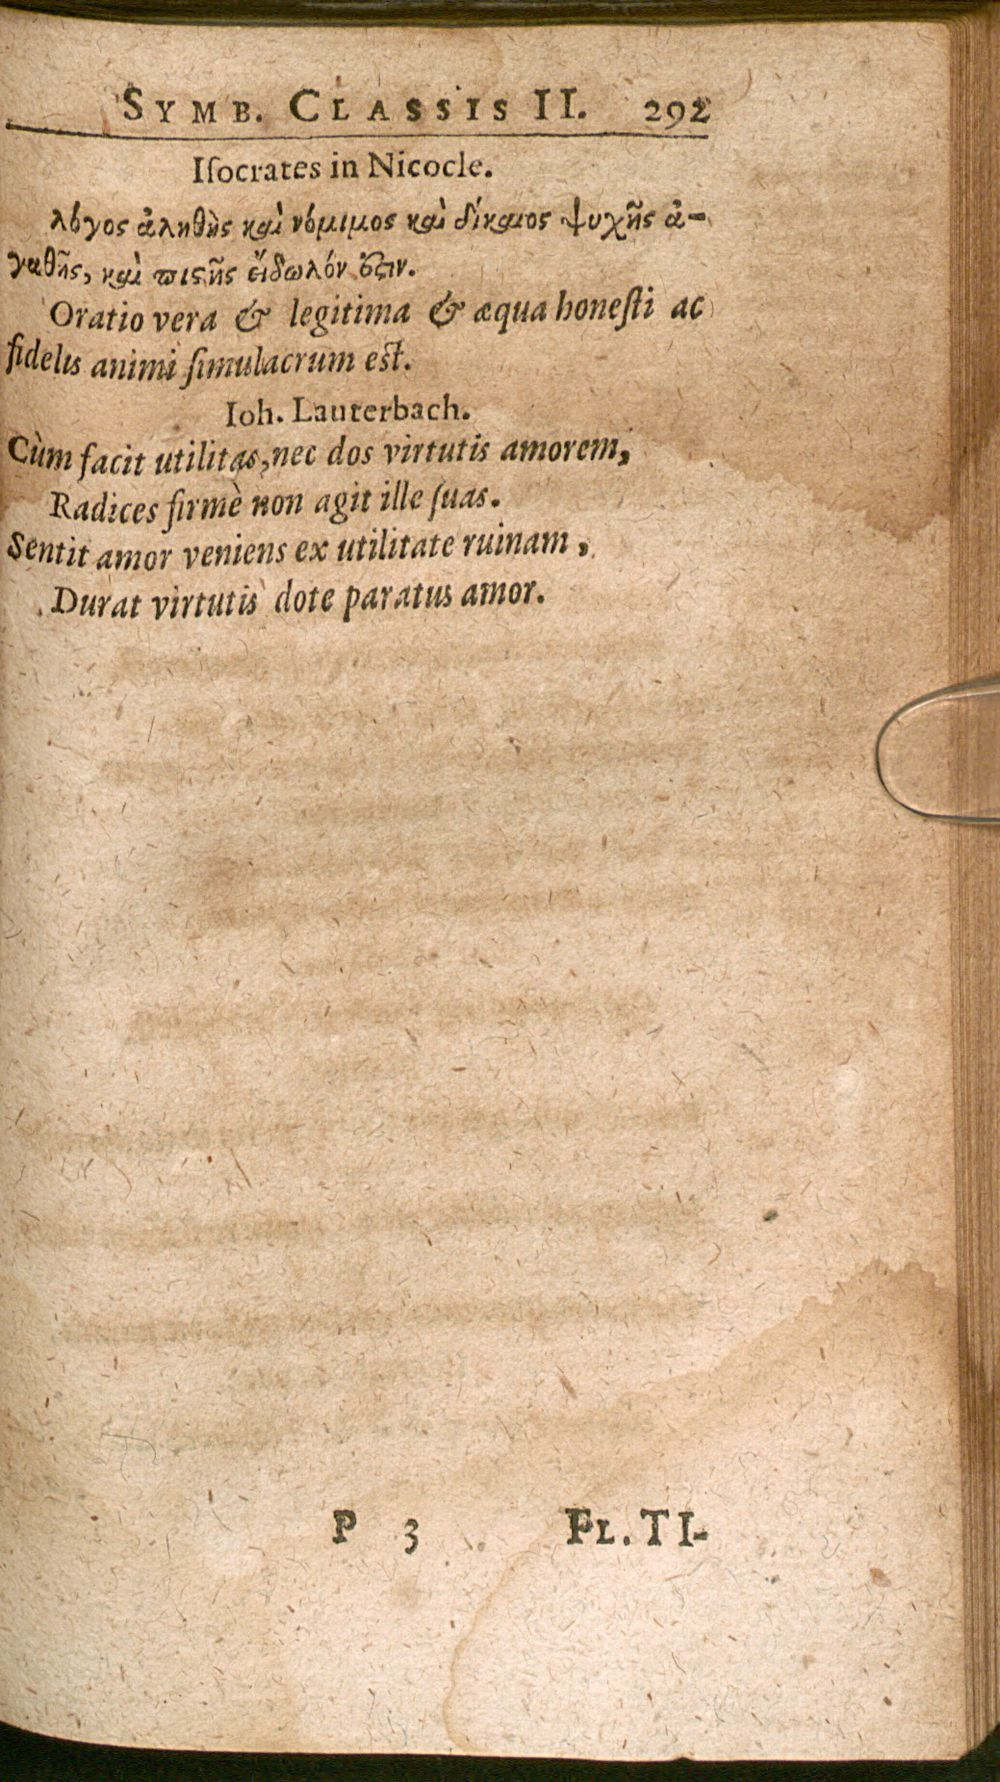 SYMB. CLASSIS II. 292
Iſocrates in Nicocle.
λόγος ἀληθὴς καὶ νόμιμος καὶ δίκαιος ψυχῆς ἀ-
γαθῆς, καὶ πιϛῆς εἴδωλόν ἐϛιν.
Oratio vera & legitima & æqua honeſti ac
fidelis animi ſimulacrum eſt.
Ioh. Lauterbach.
Cùm facit utilitas, nec dos virtutis amorem,
Radices firmè non agit ille ſuas.
Sentit amor veniens ex utilitate ruinam,
Durat virtutis dote paratus amor.
P 3 FL. TI-